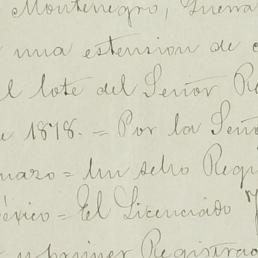 Montenegro, Guerra
una estension de
el lote del Señor Re
de 1878. = Por la Seño
marzo = Un sello Regi
México = El Licenciado
y primer Registrad